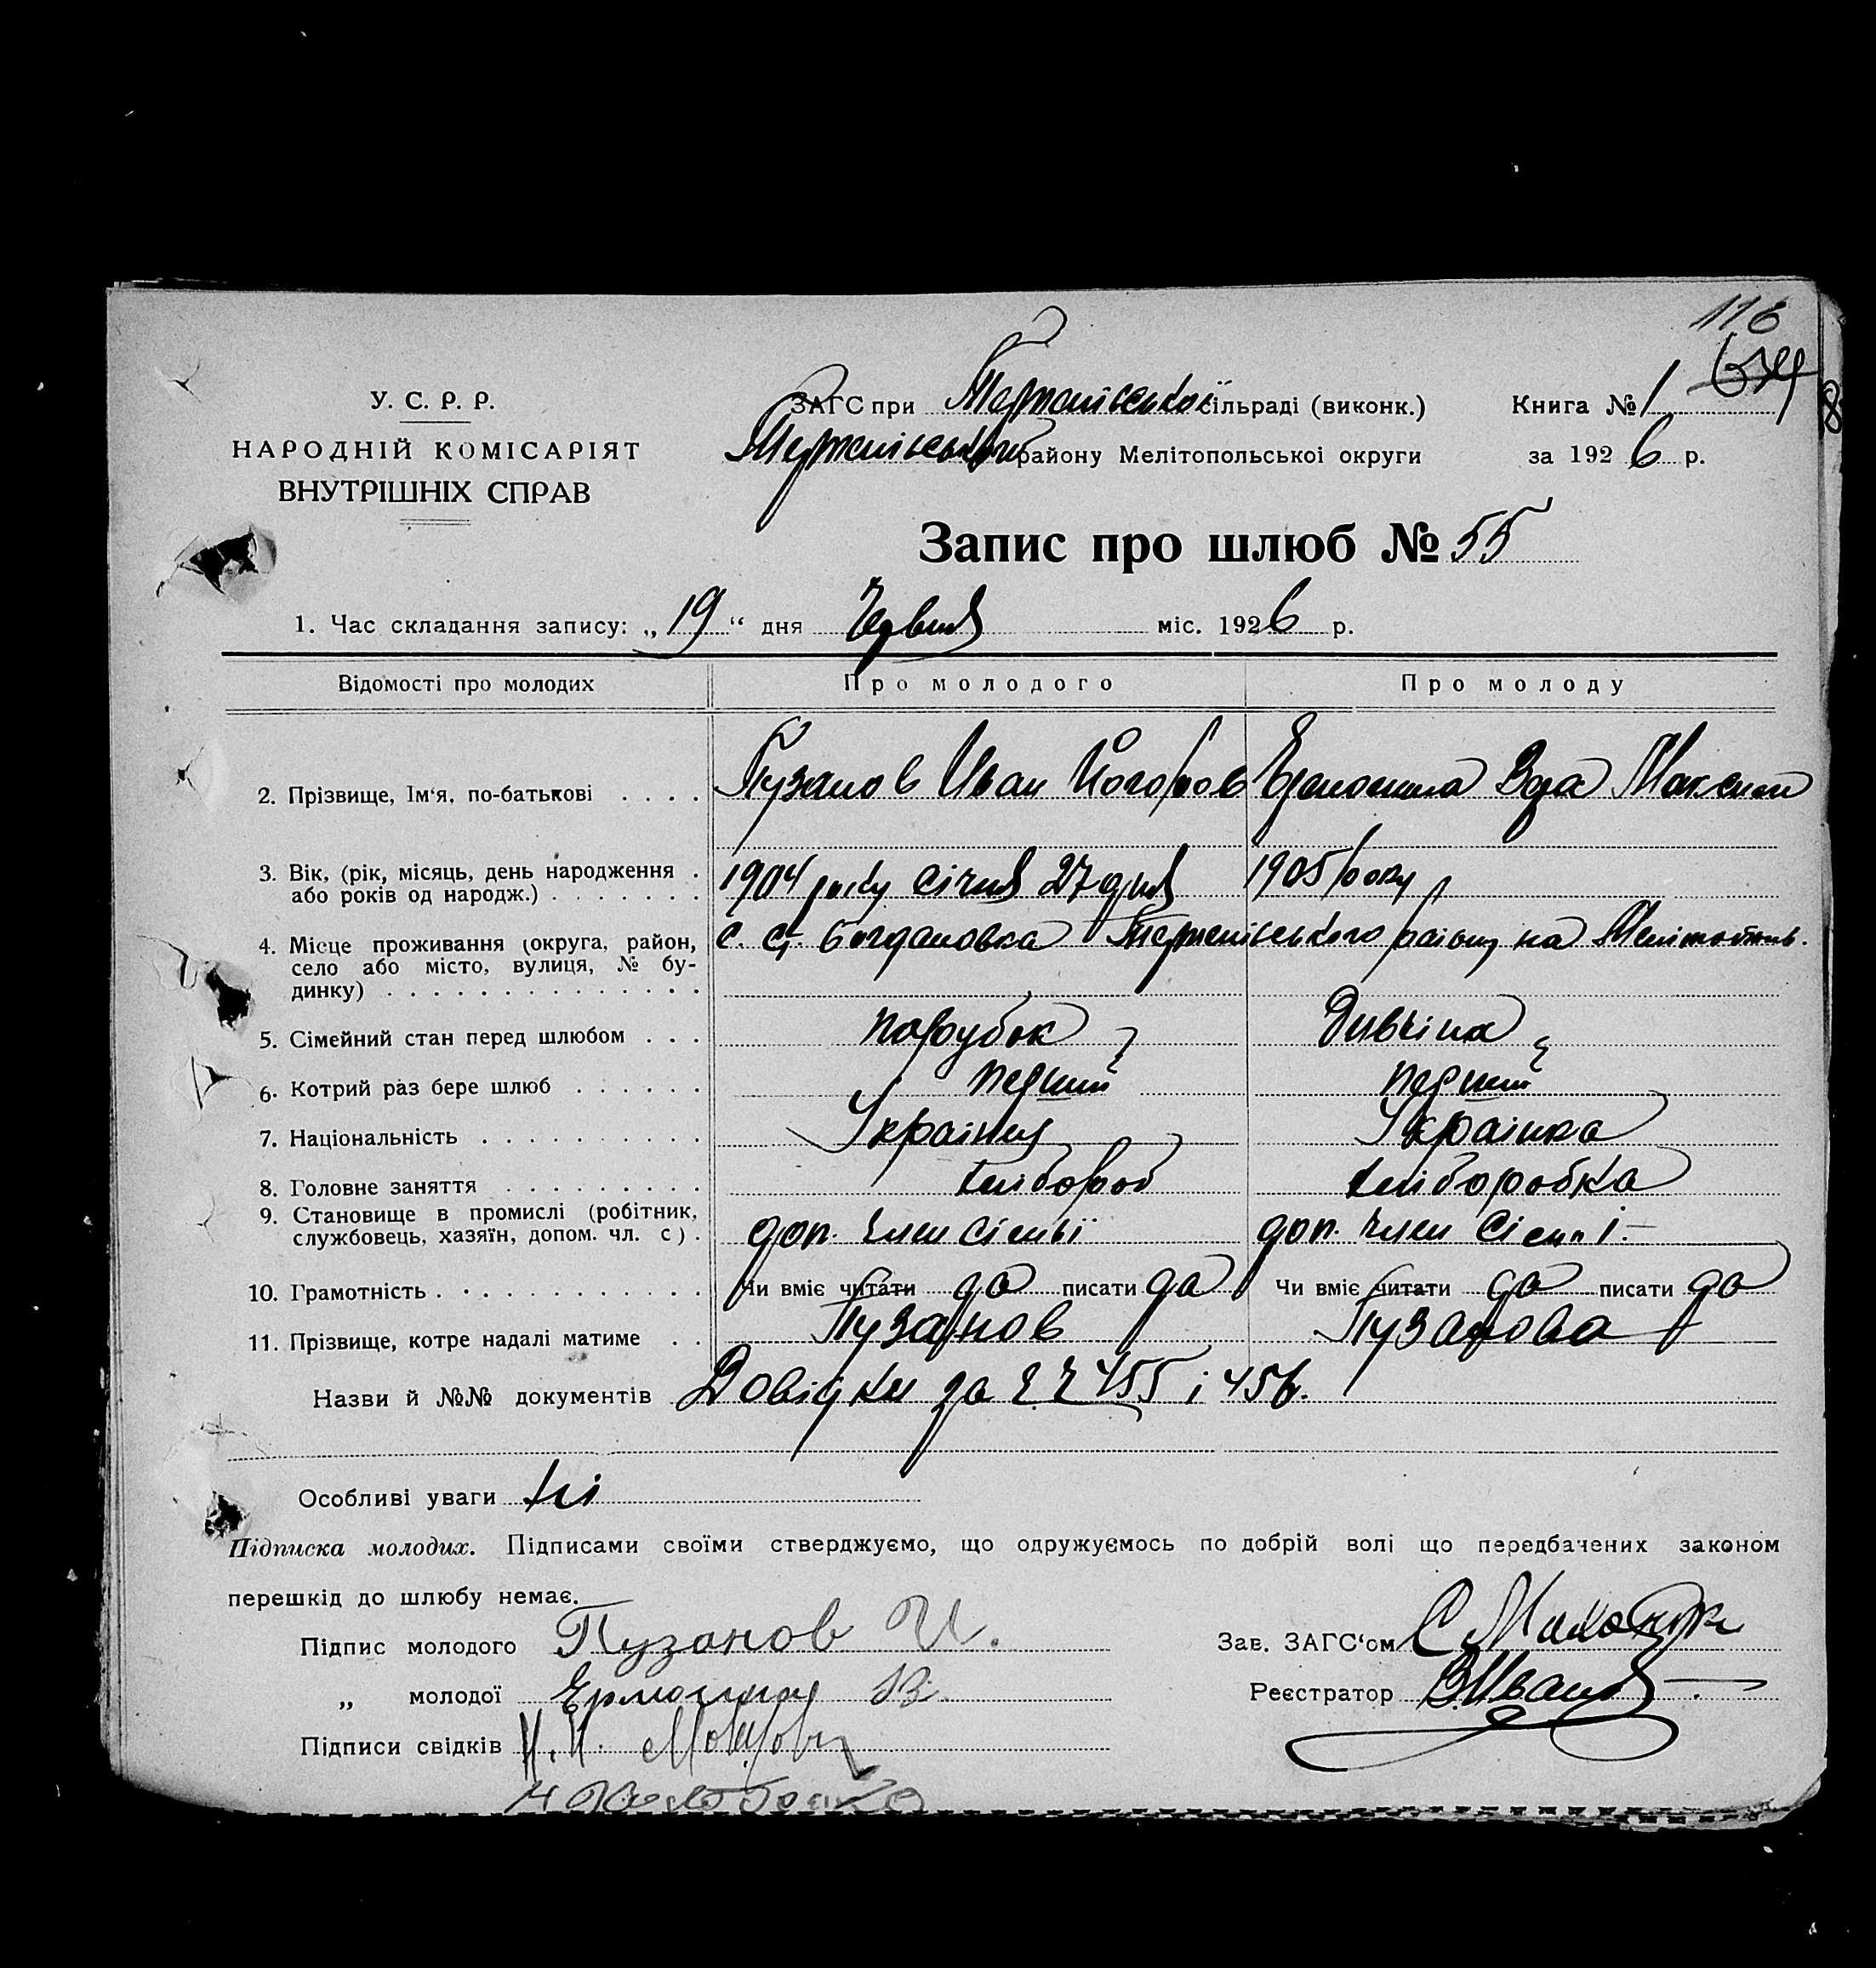 116
У. С. Р. Р.
НАРОДНІЙ КОМІСАРІЯТ
ВНУТРІШНІХ СПРАВ
ЗАГС при Терпеніівської сільраді (виконк.)
Терпеніівського району Мелітопольськоі округи
Книга № 1
за 1926 р.
Запис про шлюб № 55
1. Час складання запису: „19“ дня Червня міс. 1926 р.
Відомості про молодих Про молодого Про молоду
2. Прізвище, Ім‘я, по-батькові . . . . Пузанов Иван Йогоров Ермошина Максим
3. Вік, (рік, місяць, день народження . 1904 року Січня 27 дня 1905 року
або років од народж.) . . . . . . .
4. Місце проживання (округа, район, с. Богдановка Терпенівського району на Мелітопол.
село або місто, вулиця, № бу-
динку) . . . . . . . . . . . . . .
5. Сімейний стан перед шлюбом . . . парубок Дивчіна
6. Котрий раз бере шлюб . . . . . . перший перший
7. Національність . . . . . . . . . . Українец Українка
8. Головне заняття . . . . . . . . . хлібороб хліборобка
9. Становище в промислі (робітник, доп. член сіемьї доп. член сіемьі
службовець, хазяїн, допом. чл. с) .
10. Грамотність . . . . . . . . . . . . Чи вміє читати да писати да Чи вміє читати да писати да
11. Прізвище, котре надалі матиме . . Пузанов Пузанова
Назви й №№ документів Довідки за 455 і 456.
Особливі уваги Ні
Підписка молодих. Підписами своїми стверджуємо, що одружуємось по добрій волі що передбачених законом
перешкід до шлюбу немає.
Підпис молодого Пузанов И.
Зав. ЗАГС‘ом
„ молодої Ермошина В.
Реєстратор В. Иванов
Підписи свідків И. И.